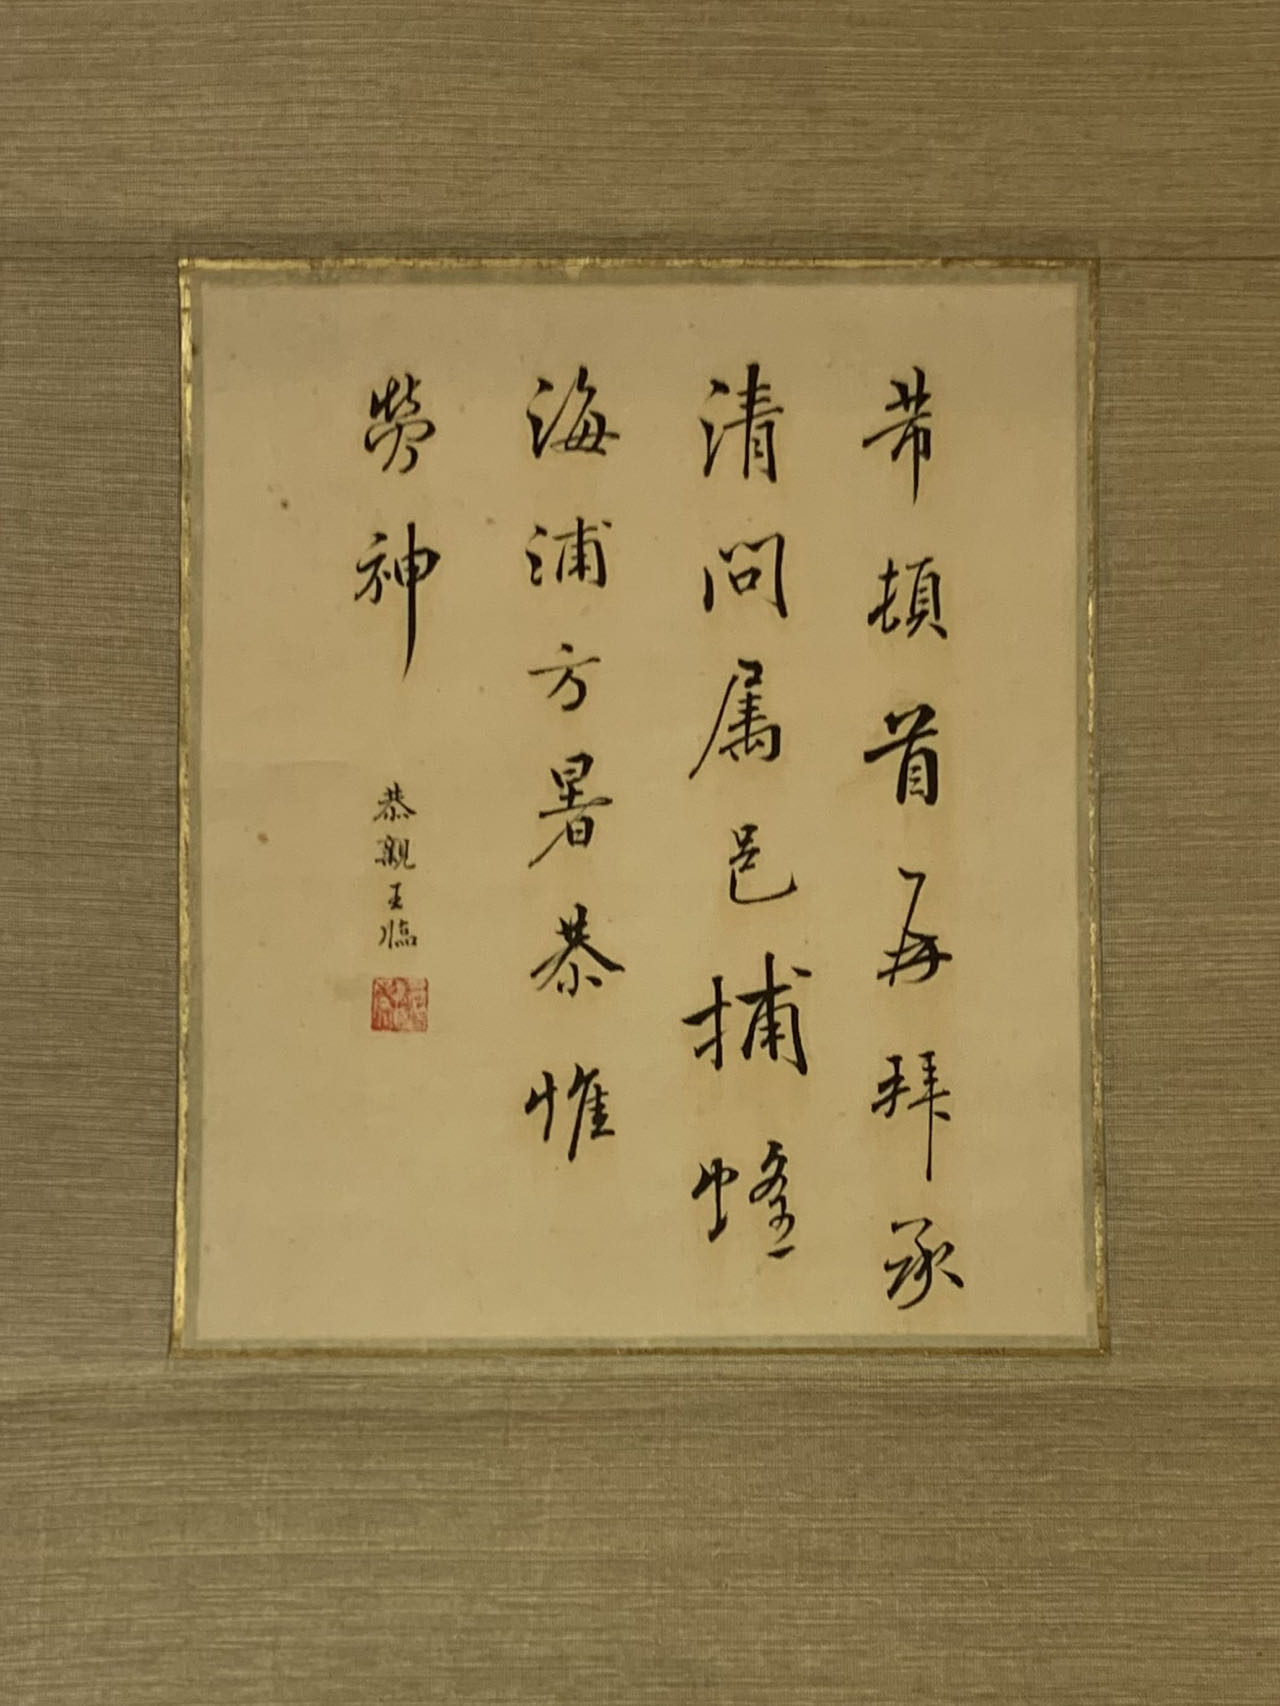 芾頓首再拜承
清問属邑捕蝗
海浦方暑恭惟
勞神
恭親王臨